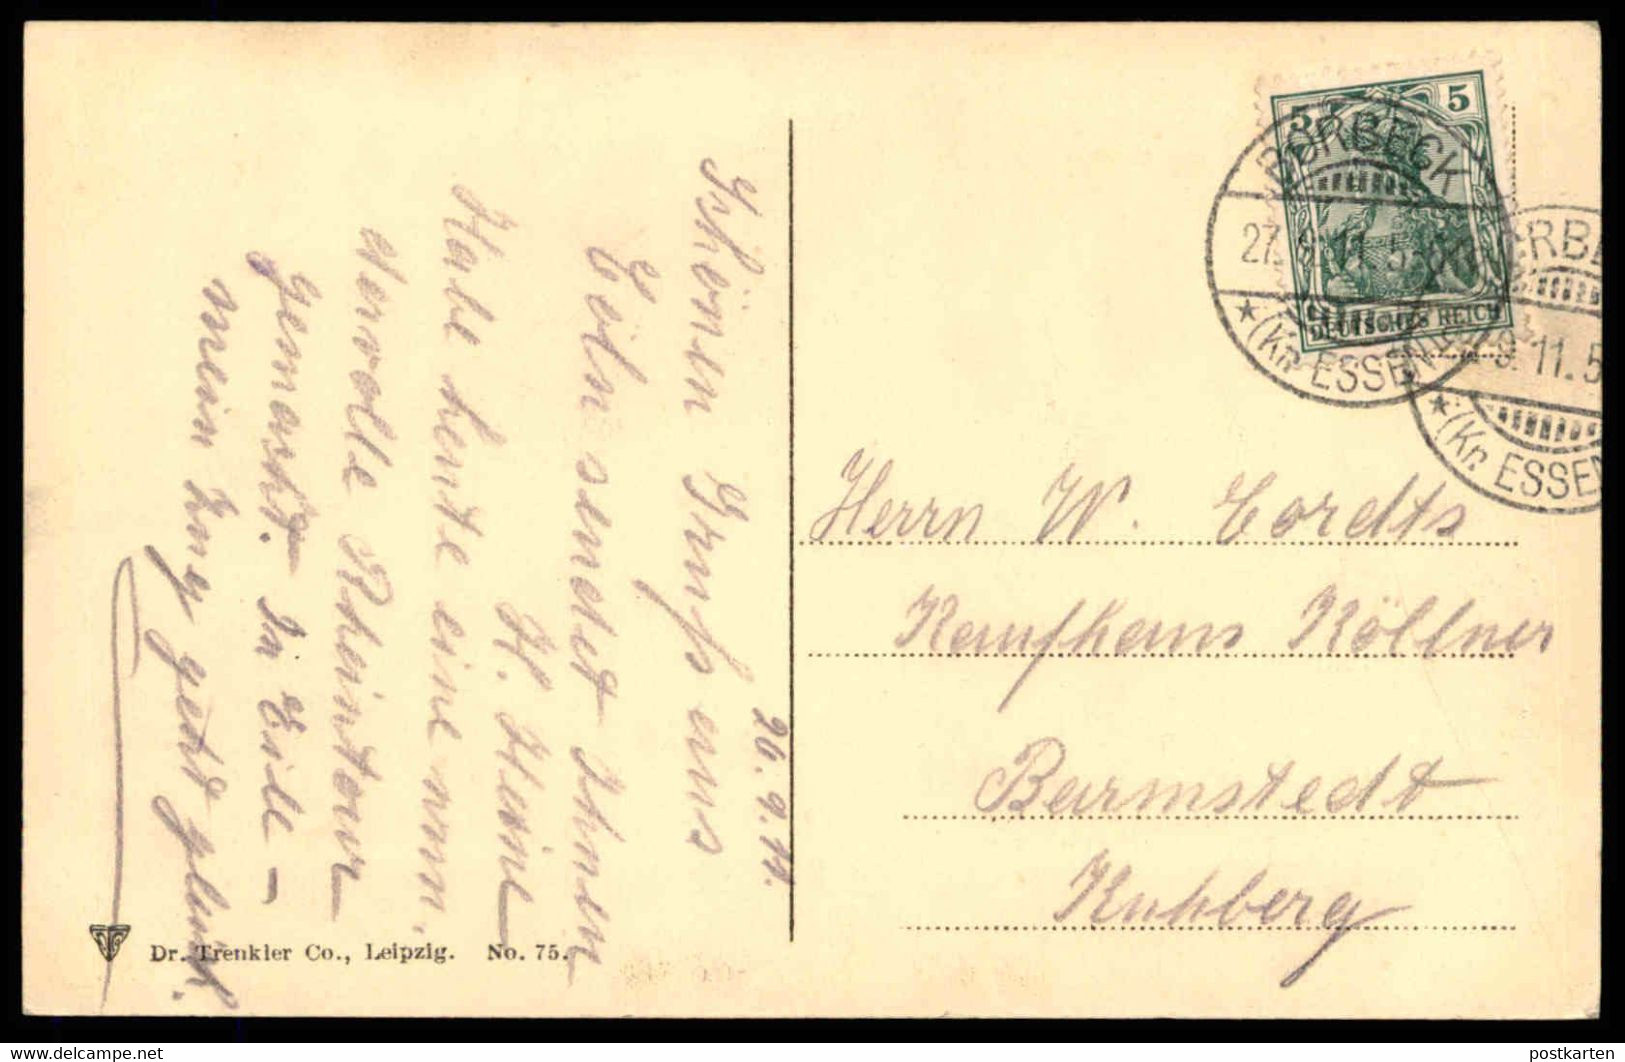 26. 9. 11.
Schönen Gruß aus
Cöln sendet Ihnen
H. Heine
Habe heute eine nun.
dervolle Rheintour
gemacht. In Eile –
mein Zug geht gleich.
Herrn W. Cordts
Kaufhaus Köllner
Barmstedt
Kuhberg
5 5
DEUTSCHES REICH
BORBECK
27. 9. 11. 5
* (Kr. ESSEN
ORBE
9. 11. 5
* (Kr. ESSEN
Dr. Trenkler Co., Leipzig. No. 75.
www.delcampe.net
postkarten